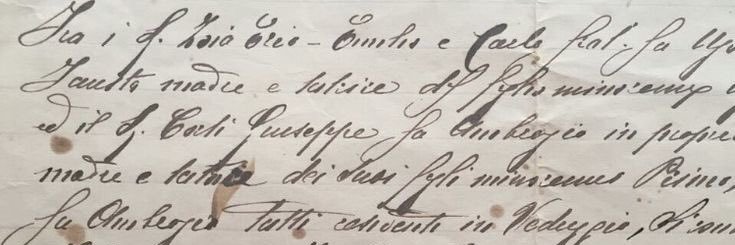 Tra i S. Zoia Ezio - Emilio e Carlo frat. fu
Fausta madre e tutrice dei figli minorenni
ed il S. Corti Giuseppe fu Ambrogio in propri
madre e tutrice dei suoi figli minorenni Primo,
fu Ambrogio tutti residenti in Veduggio, si